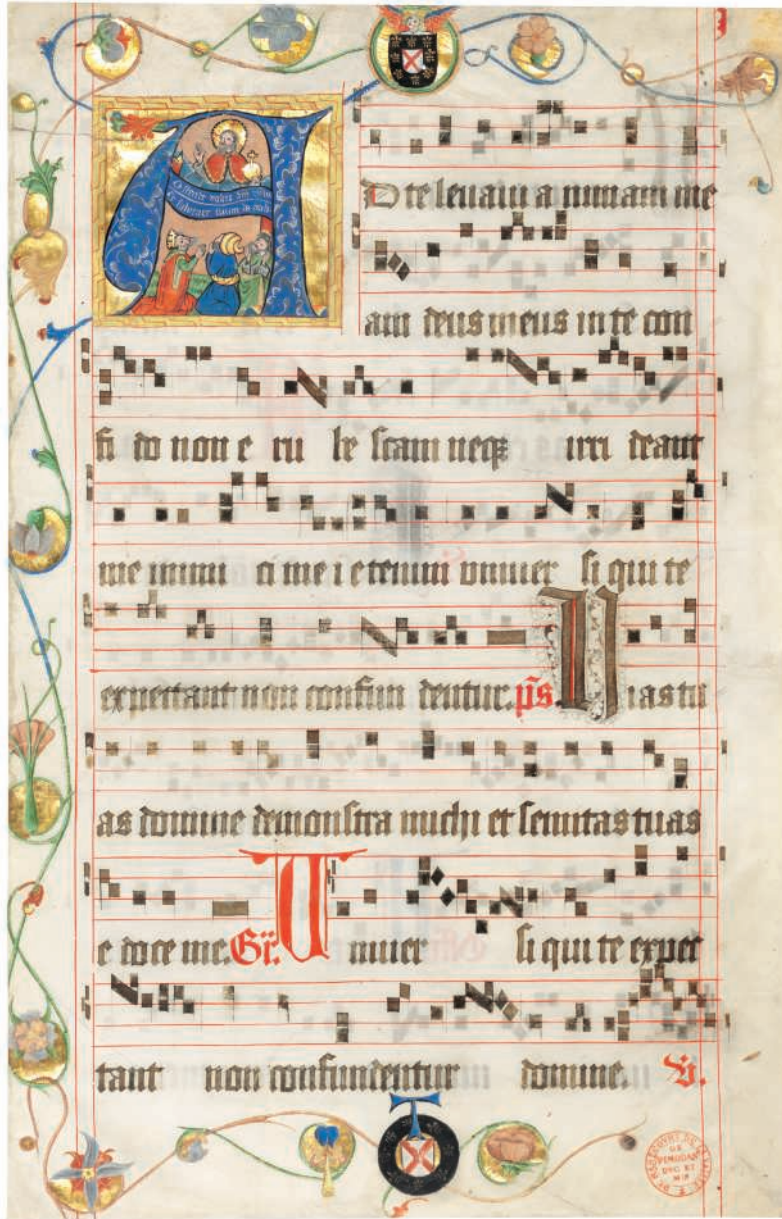 AD te levavi a nimam me
am deus meus in te con
fi do non e ru be scam neqz irri deant
me inimi ci me i etenim univer si qui te
expectant non confun dentur. p̃s. Vias tu
as domine demonstra michi et semitas tuas
e doce me. Gr̃. Univer si qui te expec
tant non confundentur domine. V̄.